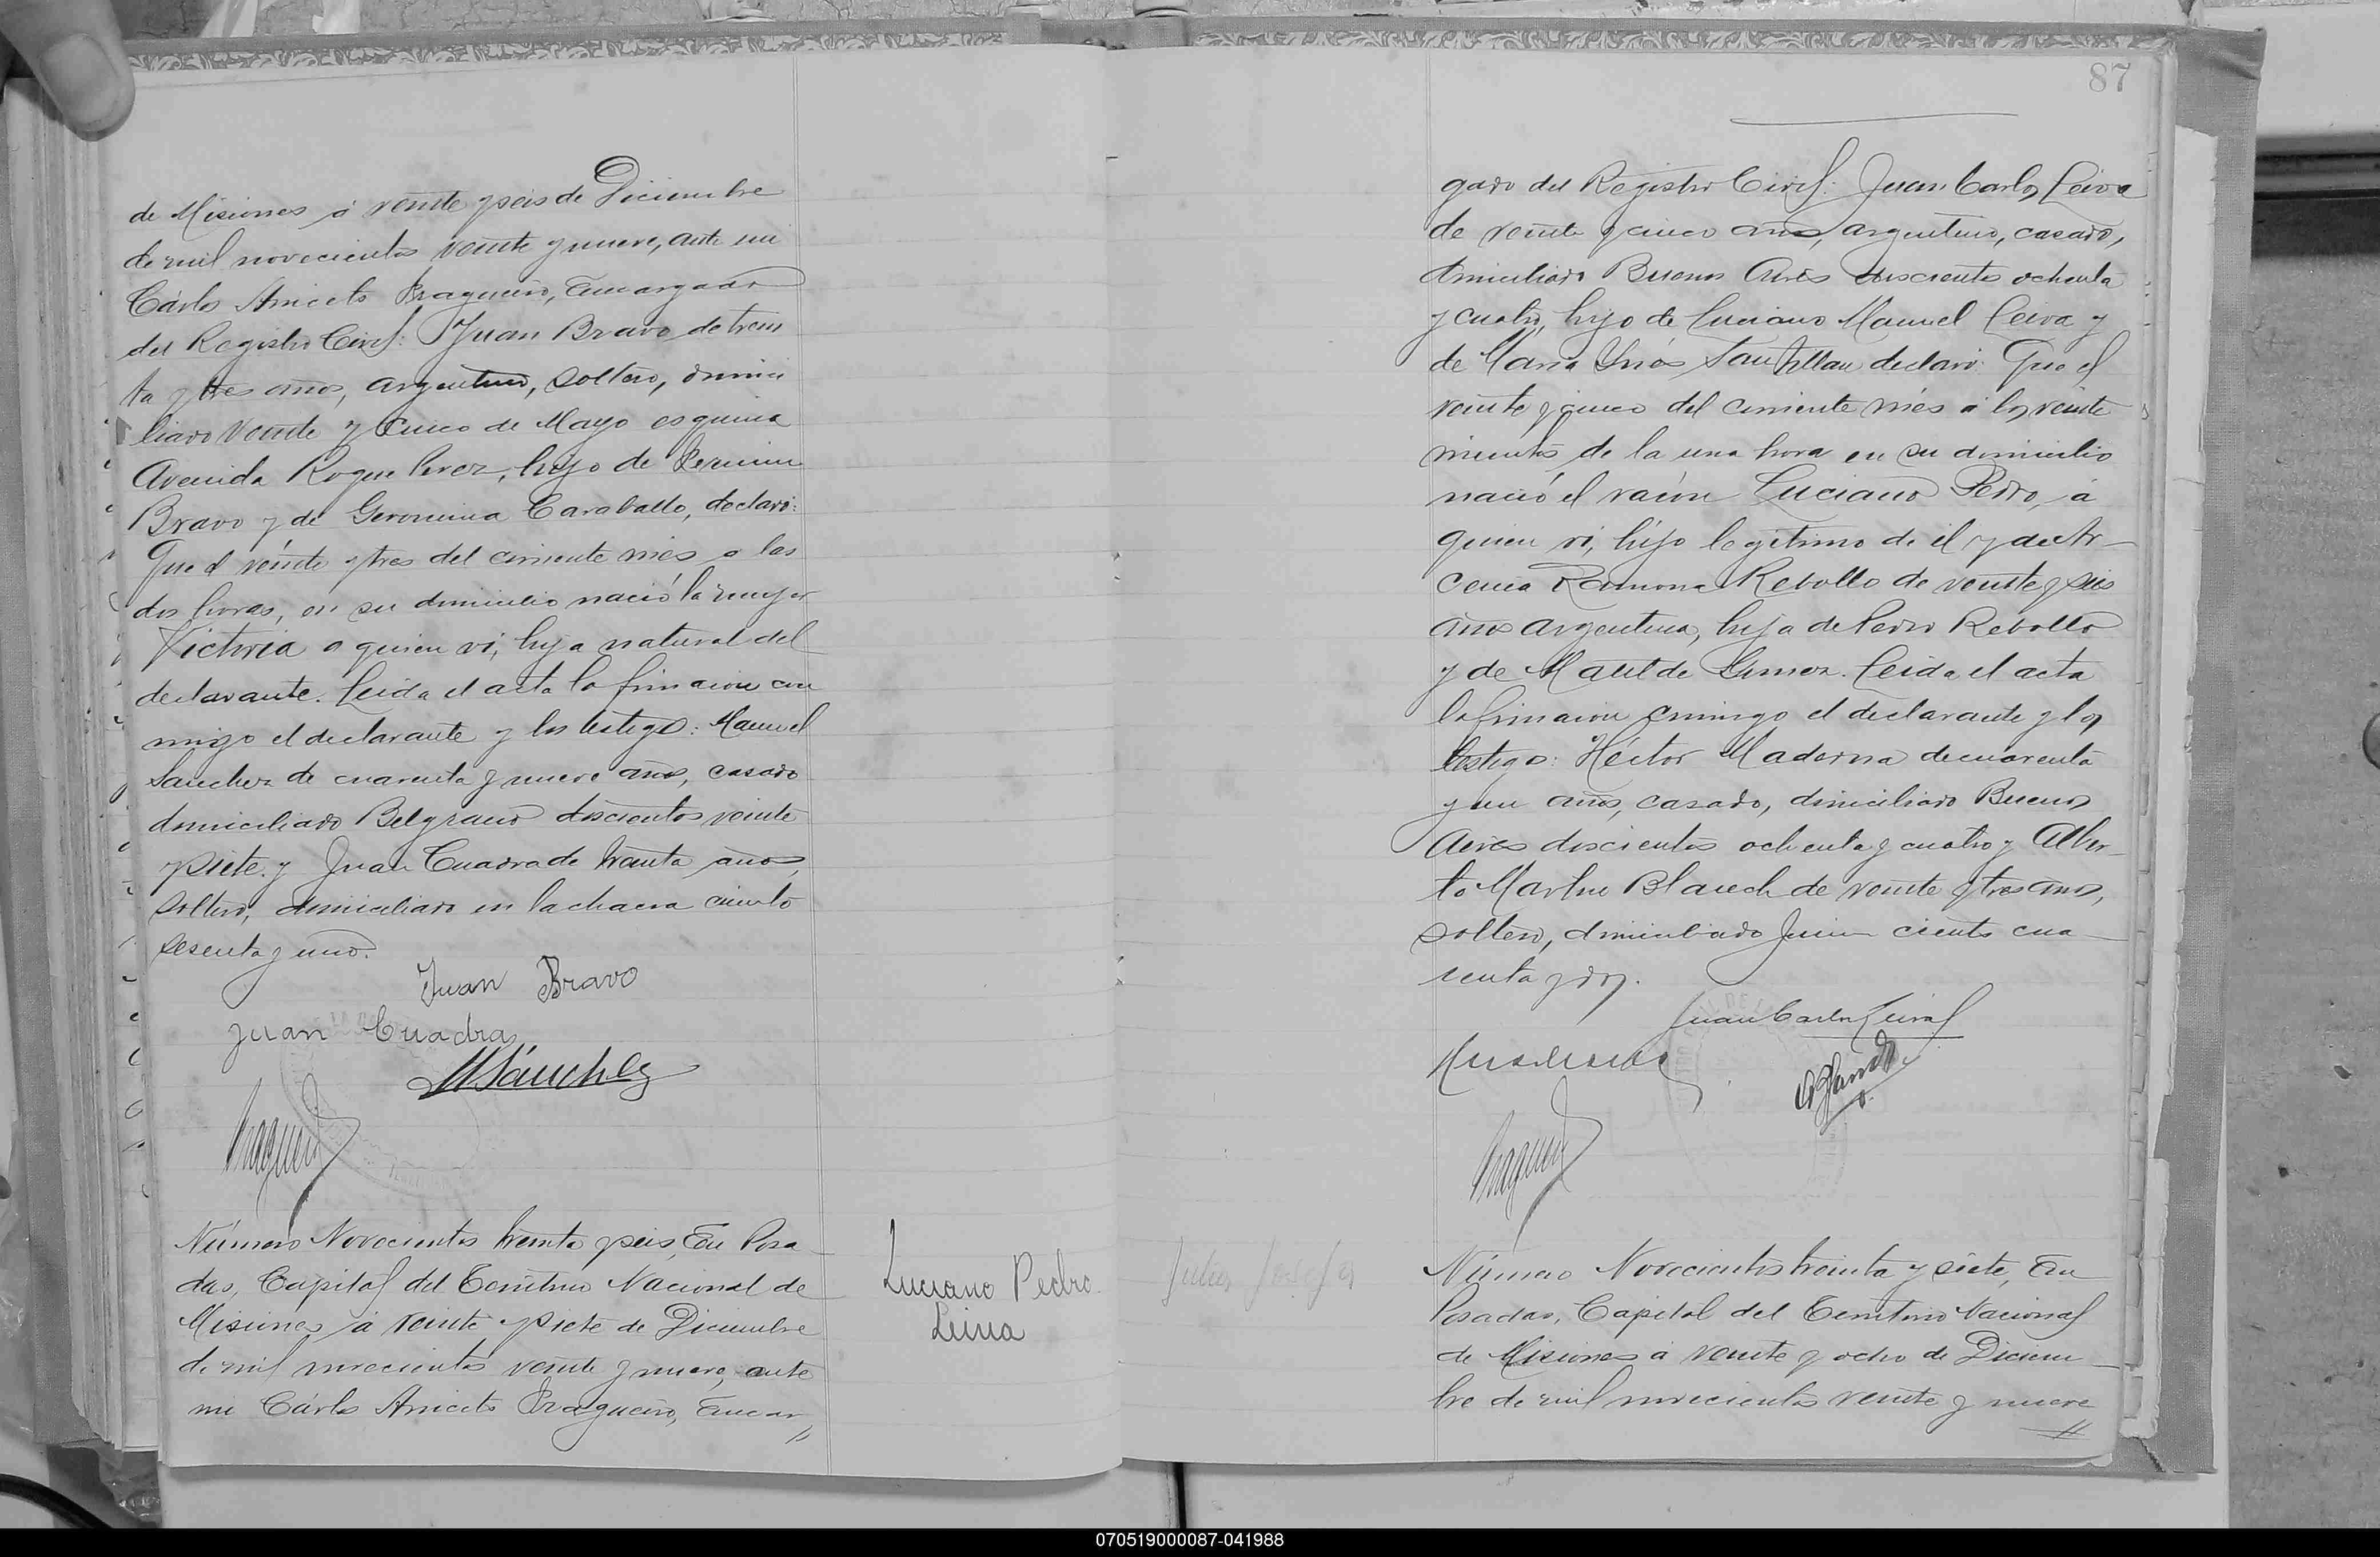 de Misiones á veinte y seis de Diciembre
de mil novecientos veinte y nueve, ante mi
Cárlos Aniceto Fragueiro, Encargado
del Registro Civil: Juan Bravo de trein
ta y tres años, argentino, soltero, domici
liado Veinte y Cinco de Mayo esquina
Avenida Roque Perez, hijo de Fermin
Bravo y de Geronima Caraballo, declaró:
Que el veinte y tres del corriente mes a las
dos horas, en su domicilio nació la mujer
Victoria a quien ví, hija natural del
declarante. Leida el acta la firmaron con
migo el declarante y los testigos: Manuel
Sanchez de cuarenta y nueve años, casado
domiciliado Belgrano doscientos veinte
y siete y Juan Cuadra de treinta años,
soltero, domiciliado en la chacra ciento
sesenta y uno.
Juan Bravo
Juan Cuadra
M Sánchez
Número Novecientos treinta y seis, En Posa
das, Capital del Territorio Nacional de
Misiones, á veinte y siete de Diciembre
de mil novecientos veinte y nueve, ante
mi Cárlos Aniceto Fragueiro, Encar
Luciano Pedro
Leiva
87
gado del Registro Civil: Juan Carlos Leiva
de veinte y cinco años, argentino, casado,
domiciliado Buenos Aires doscientos ochenta
y cuatro, hijo de Luciano Manuel Leiva y
de Maria Inés Santillan declaró: Que el
veinte y cinco del corriente més á los veinte
minutos de la una hora en su domicilio
nació el varón Luciano Pedro, á
quien ví, hijo legitimo de él y de Ar-
cenia Ramona Rebollo de veinte y seis
años argentina, hija de Pedro Rebollo
y de Matilde Gimez. Leida el acta
la firmaron conmigo el declarante y los
testigos: Héctor Maderna de cuarenta
y un años, casado, domiciliado Buenos
Aires doscientos ochenta y cuatro y Alber-
to Martin Blanch de veinte y tres años,
soltero, domiciliado Junin ciento cua
renta y dos.
Juan Carlos Leiva
Julia Josefa
Número Novecientos treinta y siete, En
Posadas, Capital del Territorio Nacional
de Misiones á veinte y ocho de Diciem
bre de mil novecientos veinte y nueve
070519000087-041988